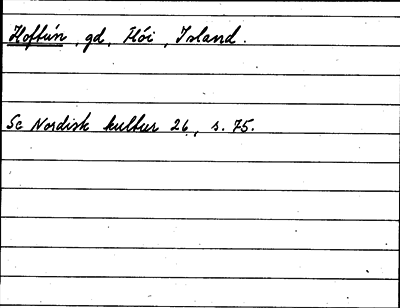 Hoftún, gd, Flói, Island.
Sc Nordisk kultur 26, s. 75.